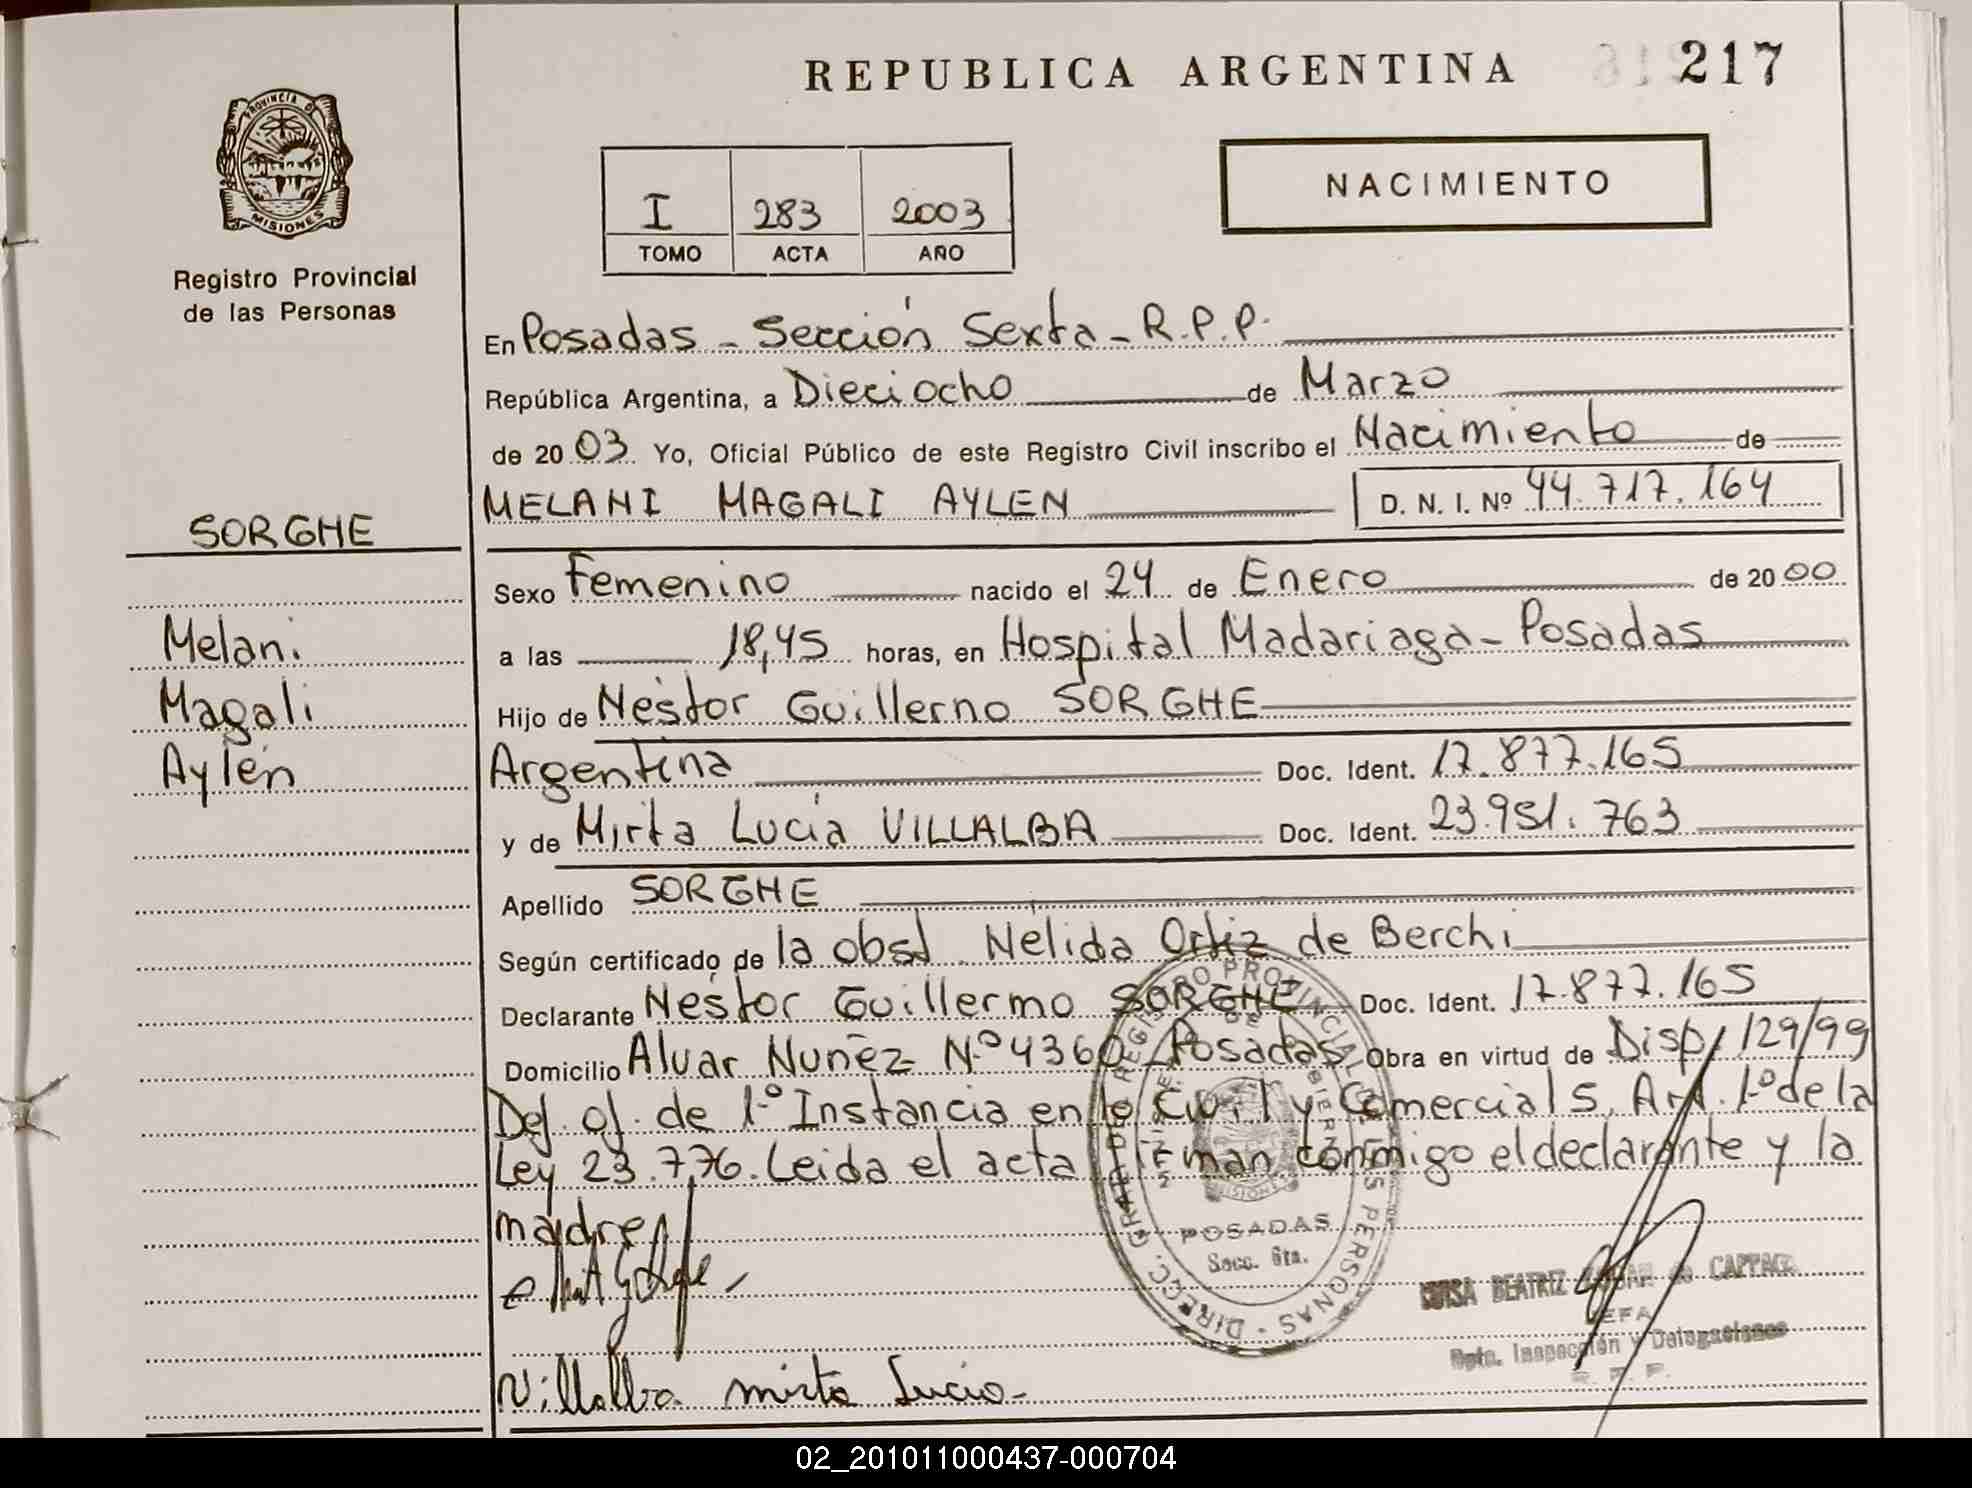 REPUBLICA ARGENTINA
217
PROVINCIA DE
MISIONES
Registro Provincial
de las Personas
I 283 2003
TOMO ACTA AÑO
NACIMIENTO
En Posadas - Sección Sexta - R.P.P.
República Argentina, a Dieciocho de Marzo
de 2003 Yo, Oficial Público de este Registro Civil inscribo el Nacimiento de
MELANI MAGALI AYLEN D. N. I. Nº 44.717.164
SORGHE
Melani
Magali
Aylén
Sexo Femenino nacido el 24 de Enero de 2000
a las 18,45 horas, en Hospital Madariaga - Posadas
Hijo de Néstor Guillerno SORGHE
Argentina Doc. Ident. 17.877.165
y de Mirta Lucía VILLALBA Doc. Ident. 23.951.763
Apellido SORGHE
Según certificado de la obst. Nélida Ortiz de Berchi
Declarante Néstor Guillermo SORGHE Doc. Ident. 17.877.165
Domicilio Alvar Nuñez Nº 4360 - Posadas Obra en virtud de Disp. 129/99
Def. of. de 1º Instancia en lo Civil y Comercial 5. Art. 1º de la
Ley 23.776. Leida el acta firman conmigo el declarante y la
madre
Villalba mirta Lucia-
POSADAS
Secc. 6ta.
LUISA BEATRIZ de CAPPACE
JEFA
Dpto. Inspección y Delegaciones
R. P. P.
02_201011000437-000704